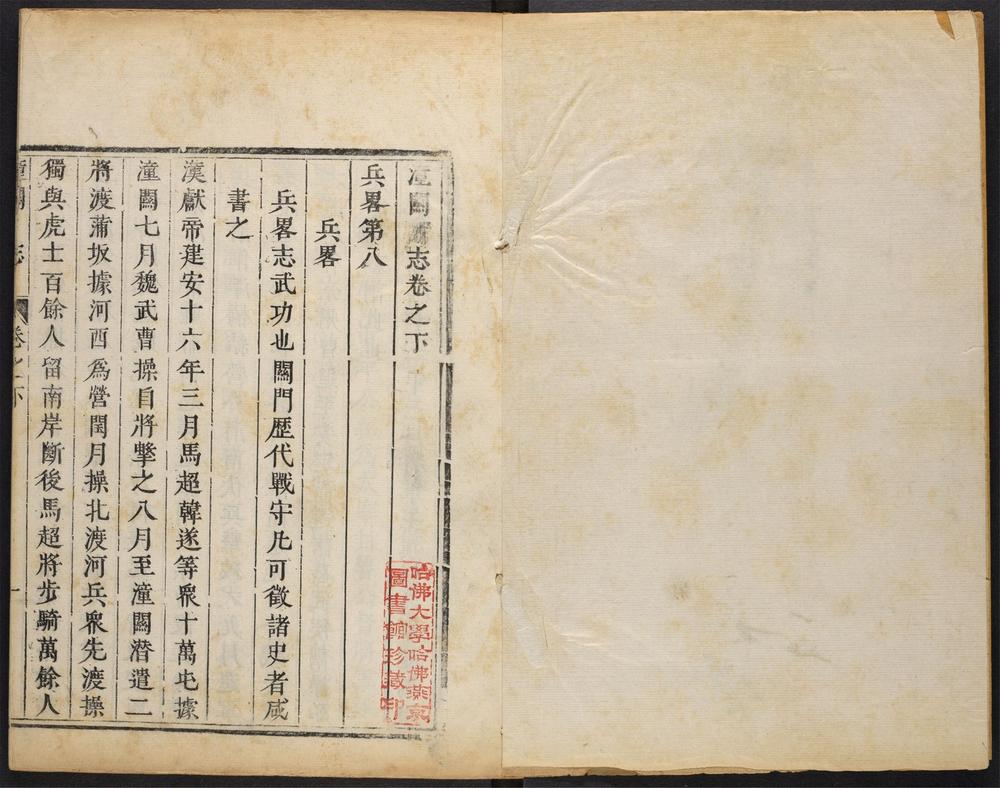 潼關衛志卷之下
兵畧第八
兵畧
兵畧志武功也關門歴代戰守凡可徵諸史者咸
書之
漢獻帝建安十六年三月馬超韓遂等衆十萬屯據
潼關七月魏武曹操自將擊之八月至潼關潛遣二
將渡蒲坂據河西為營閏月操北渡河兵衆先渡操
獨與虎士百餘人留南岸斷後馬超將步騎萬餘人
潼關 志 卷之下 一
哈佛大學哈佛燕京
圖書館珍藏印